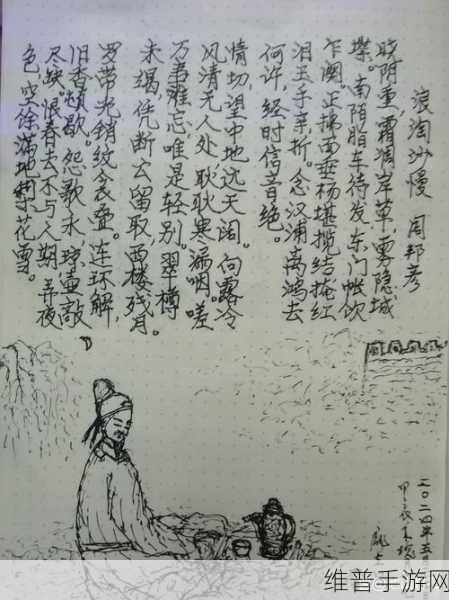 浪淘沙慢 周邦彦
晓阴重,霜凋岸草,雾隐城
堞。南陌脂车待发,东门帐饮
乍阕。正拂面垂杨堪揽结,掩红
泪玉手亲折。念汉浦离鸿去
何许,经时信音绝。
情切,望中地远天阔。向露冷
风清无人处,耿耿寒漏咽。嗟
万事难忘,唯是轻别。翠樽
未竭,凭断云留取,西楼残月。
罗带光销纹衾叠。连环解,
旧香顿歇。怨歌永,琼壶敲
尽缺。恨春去不与人期,弄夜
色,空馀满地梨花雪。
二〇二四年五
甲辰
维普手游网